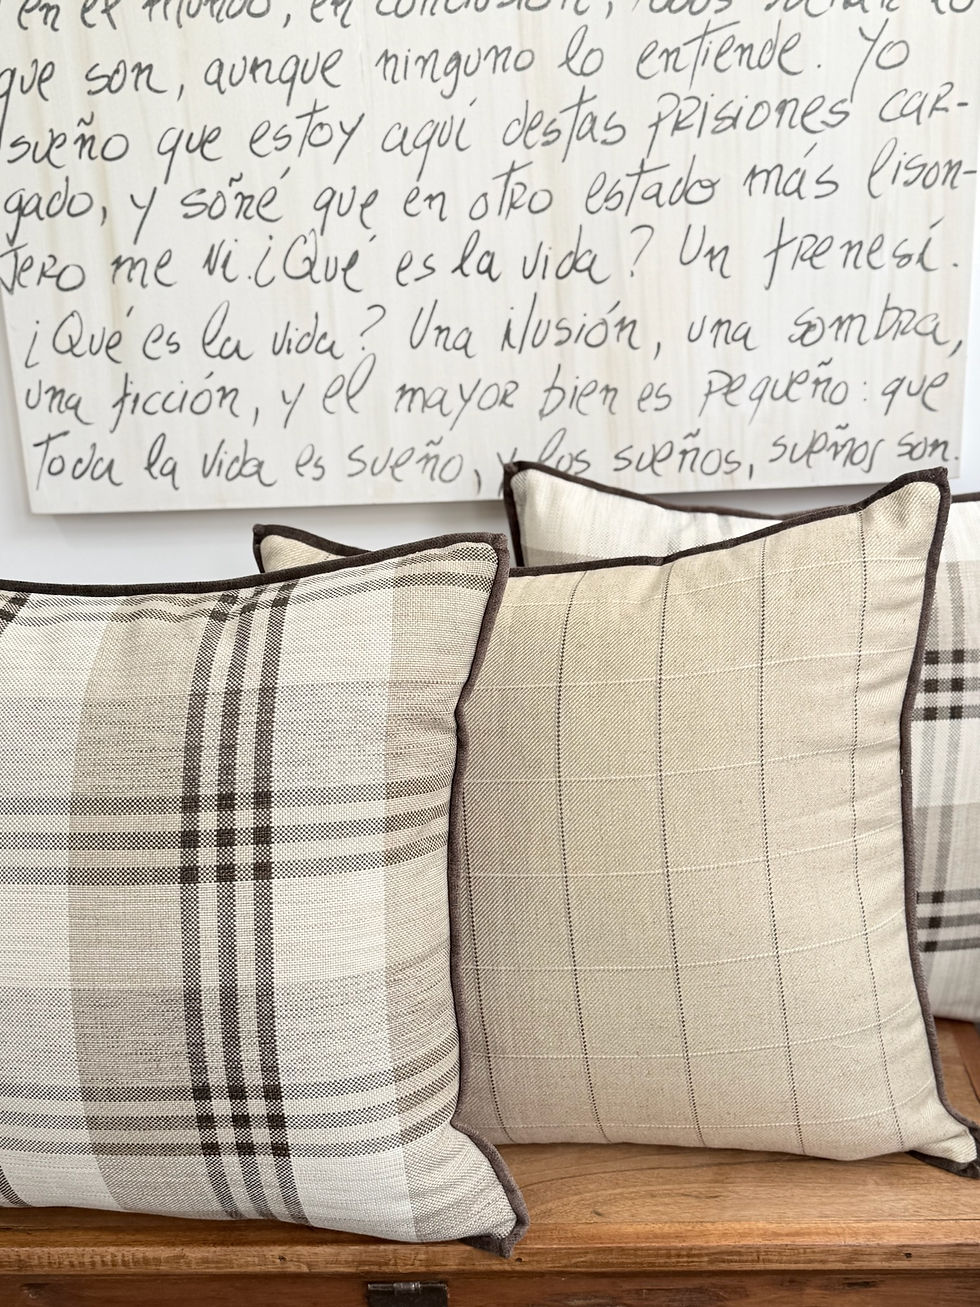 en el mundo, en conclusión, todos sueñan lo
que son, aunque ninguno lo entiende. Yo
sueño que estoy aquí destas prisiones car-
gado, y soñé que en otro estado más lison-
jero me vi. ¿Qué es la vida? Un frenesí.
¿Qué es la vida? Una ilusión, una sombra,
una ficción, y el mayor bien es pequeño: que
toda la vida es sueño, y los sueños, sueños son.